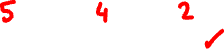 5 4 2
✓